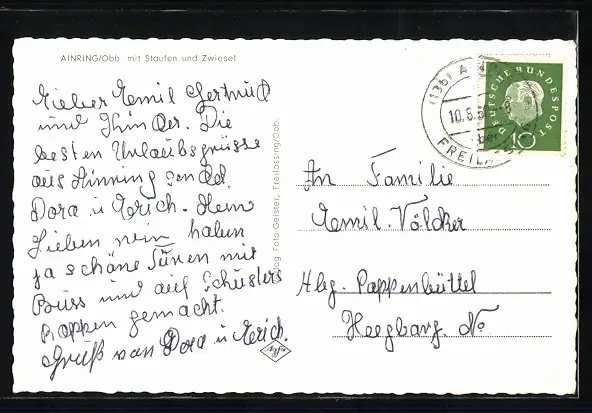 AINRING/Obb mit Staufen und Zwiesel
Lieber Emil Gertrud
und Kinder. Die
besten Urlaubsgrüsse
aus Ainring sendet
Dora u Erich. Mein
Lieben nein haben
ja schöne Turen mit
Buss und auf Schusters
Rappen gemacht.
Gruß von Dora u Erich.
Foto Geister, Freilassing/Obb.
(13b) A
10.8.
FREIL
DEUTSCHE BUNDESPOST
10
An Familie
Emil. Völcker
Hbg. Pappenbüttel
Heegbarg. No